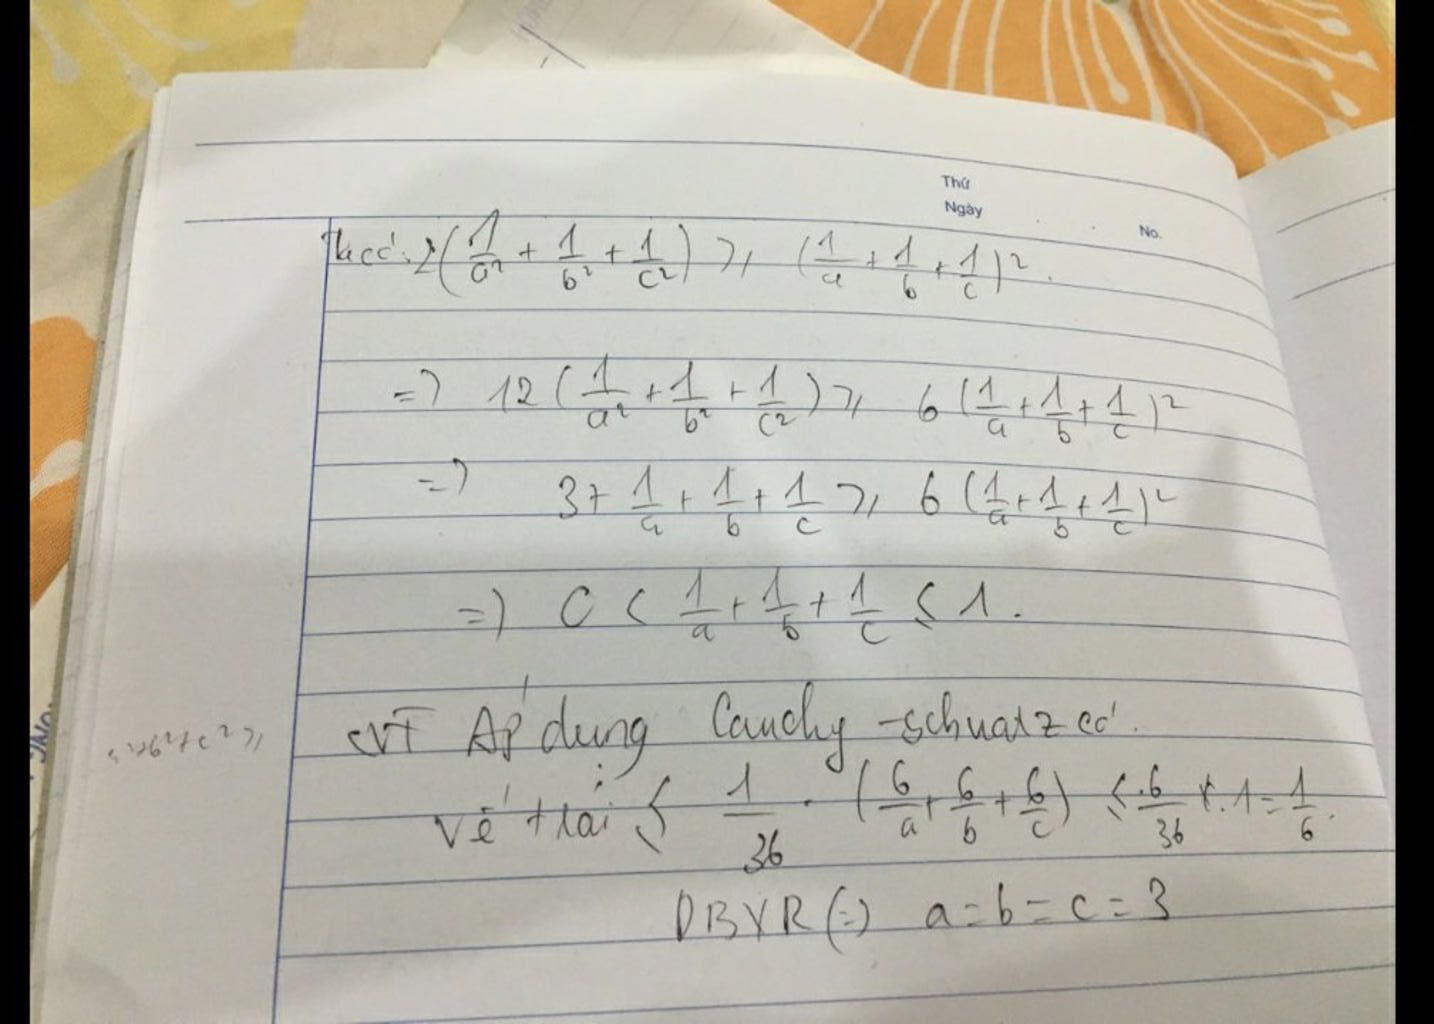 Thứ
Ngày
No.
Ta có: 2(1/a² + 1/b² + 1/c²) ⩾ (1/a + 1/b + 1/c)².
=> 12(1/a² + 1/b² + 1/c²) ⩾ 6(1/a + 1/b + 1/c)²
=> 3 + 1/a + 1/b + 1/c ⩾ 6(1/a + 1/b + 1/c)²
=> 0 < 1/a + 1/b + 1/c ⩽ 1.
CVT Áp dụng Cauchy-schuatz có.
vế trái ⩽ 1/36 . (6/a + 6/b + 6/c) ⩽ .6/36 . 1 = 1/6.
DBXR (=) a = b = c = 3